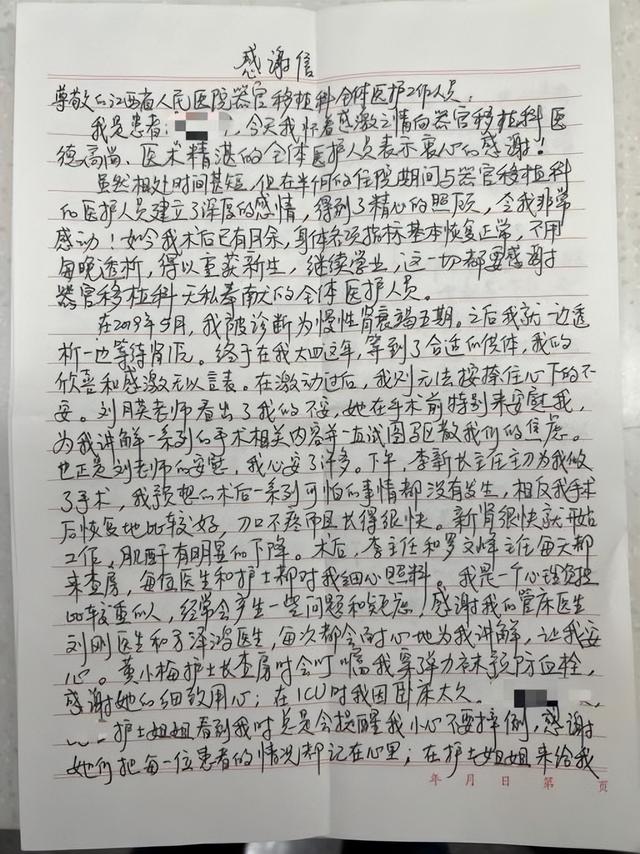 感谢信
尊敬的江西省人民医院器官移植科全体医护工作人员：
我是患者：，今天我怀着感激之情向器官移植科医
德高尚、医术精湛的全体医护人员表示衷心的感谢！
虽然相处时间甚短，但在半个月的住院期间与器官移植科
的医护人员建立了深厚的感情，得到了精心的照顾，令我非常
感动！如今我术后已有月余，身体各项指标基本恢复正常，不用
每晚透析，得以重获新生，继续学业，这一切都要感谢
器官移植科无私奉献的全体医护人员。
在2019年9月，我被诊断为慢性肾衰竭五期。之后我就一边透
析一边等待肾源。终于在我大四这年，等到了合适的供体，我的
欣喜和感激无以言表。在激动过后，我则无法按捺住心下的不
安。刘月英老师看出了我的不安，她在手术前特别来安慰我，
为我讲解一系列的手术相关内容并一直试图驱散我们的焦虑。
也正是刘老师的安慰，我心安了许多。下午，李新长主任主刀为我做
了手术，我预想的术后一系列可怕的事情都没有发生，相反我手术
后恢复地比较好，刀口不疼而且长得很快。新肾很快就开始
工作，肌酐有明显的下降。术后，李主任和罗文峰主任每天都
来查房，每位医生和护士都对我细心照料。我是一个心理负担
比较重的人，经常会产生一些问题和疑虑，感谢我的管床医生
刘刚医生和方泽鸿医生，每次都会耐心地为我讲解，让我安
心。黄小梅护士长查房时会叮嘱我穿弹力袜预防血栓，
感谢她的细致用心；在ICU时我因卧床太久
护士姐姐看到我时总是会提醒我小心不要摔倒，感谢
她们把每一位患者的情况都记在心里；在护士姐姐来给我
年 月 日 第 页